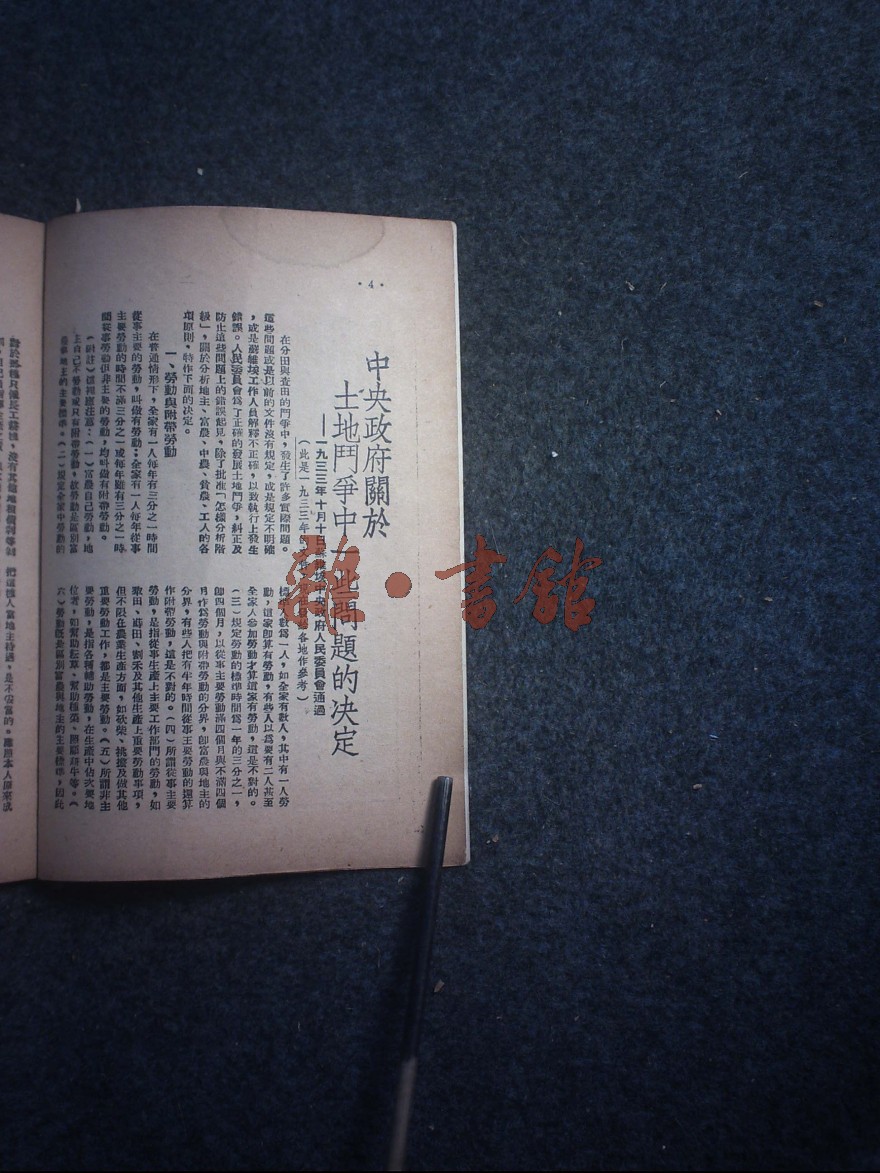 ·4·
中央政府關於
土地鬥爭中一些問題的決定
——一九三三年十月十日
中央政府人民委員會通過
(此是一九三三年
各地作參考)
在分田與查田的鬥爭中,發生了許多實際問題。
這些問題或是以前的文件沒有規定,或是規定不明確
,或是蘇維埃工作人員解釋不正確,以致執行上發生
錯誤。人民委員會為了正確的發展土地鬥爭,糾正及
防止這些問題上的錯誤起見,除了批准「怎樣分析階
級」,關於分析地主、富農、中農、貧農、工人的各
項原則,特作下面的決定。
一、勞動與附帶勞動
在普通情形下,全家有一人每年有三分之一時間
從事主要的勞動,叫做有勞動;全家有一人每年從事
主要勞動的時間不滿三分之一或每年雖有三分之一時
間從事勞動但非主要的勞動,均叫做有附帶勞動。
(附註)這裡應注意:(一)富農自己勞動,地
主自己不勞動或只有附帶勞動,故勞動是區別富
農與地主的主要標準。(二)規定全家中勞動的
標準數為一人,如全家有數人,其中有一人勞
動,這家即算有勞動,有些人以為要有二人甚至
全家人參加勞動才算這家有勞動,這是不對的。
(三)規定勞動的標準時間為一年的三分之一,
即四個月,以從事主要勞動滿四個月與不滿四個
月作為勞動與附帶勞動的分界,即富農與地主的
分界,有些人把有半年時間從事主要勞動的還算
作附帶勞動,這是不對的。(四)所謂從事主要
勞動,是指從事生產上主要工作部門的勞動,如
犂田、蒔田、割禾及其他生產上重要勞動事項,
但不限在農業生產方面,如砍柴、挑擔及做其他
重要勞動工作,都是主要勞動。(五)所謂非主
要勞動,是指各種輔助勞動,在生產中佔次要地
位者,如幫助耘草、幫助種菜、照顧耕牛等。(
六)勞動既是區別富農與地主的主要標準,因此
對於那種只僱長工耕種,沒有其他地租債利等剝